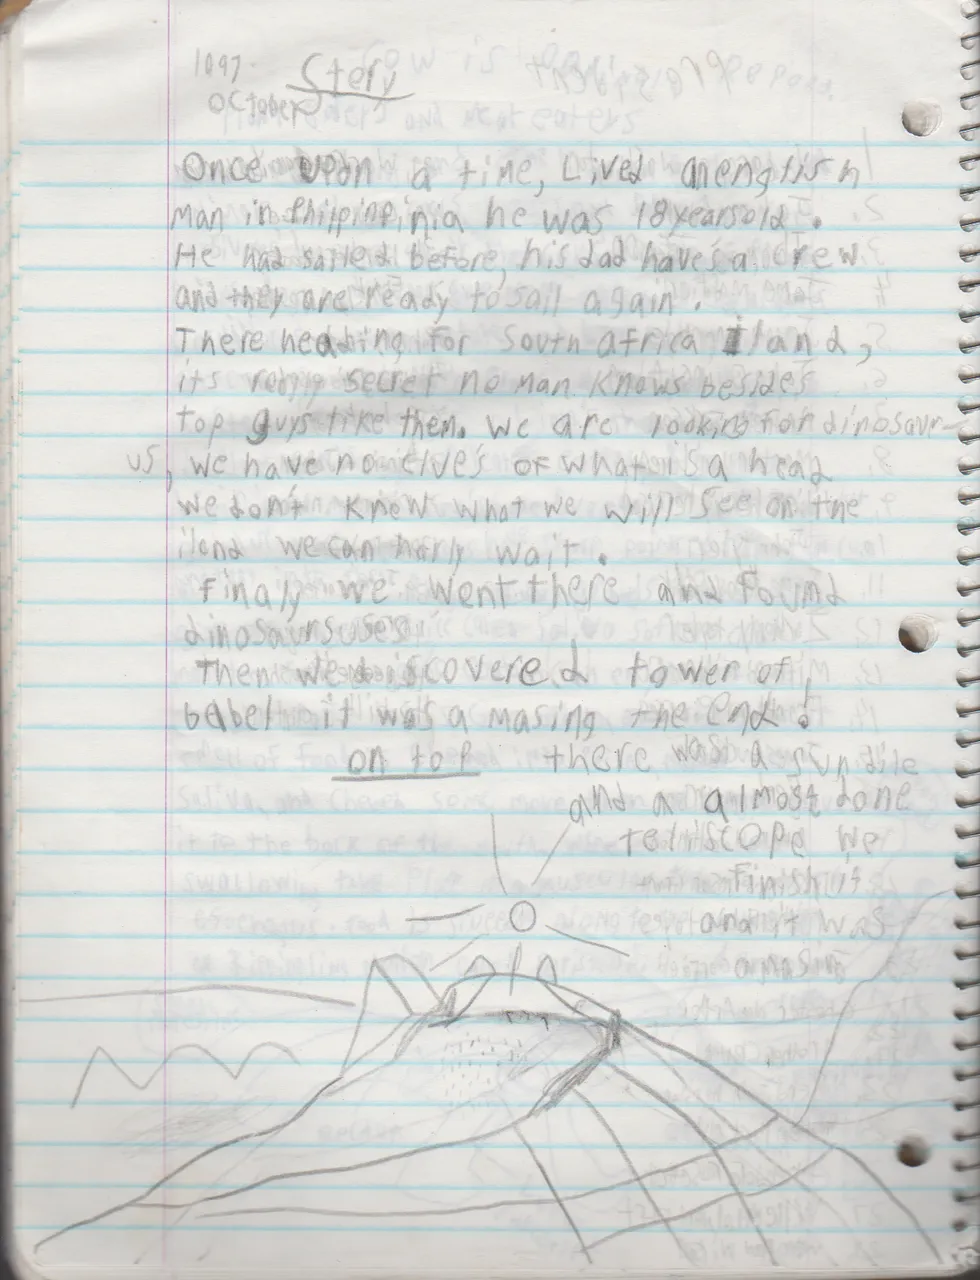 1097.
Story
October
Once upon a time, Lived anenglish
man in Philpinpinia he was 18 years old.
He had sailed before, his dad haves a crew
and they are ready to sail again.
There heading for South africa iland,
its really secret no man knows besides
top guys like them. we are looking for dinosaur-
us, we have no clue's of what is a head
we don't know what we will see on the
iland we can harly wait.
Finaly we went there and found
dinosaursuses
Then we discovered tower of
babel it was a masing the end!
on top there was a sundile
and a almost done
teliscope we
finish it
and it was